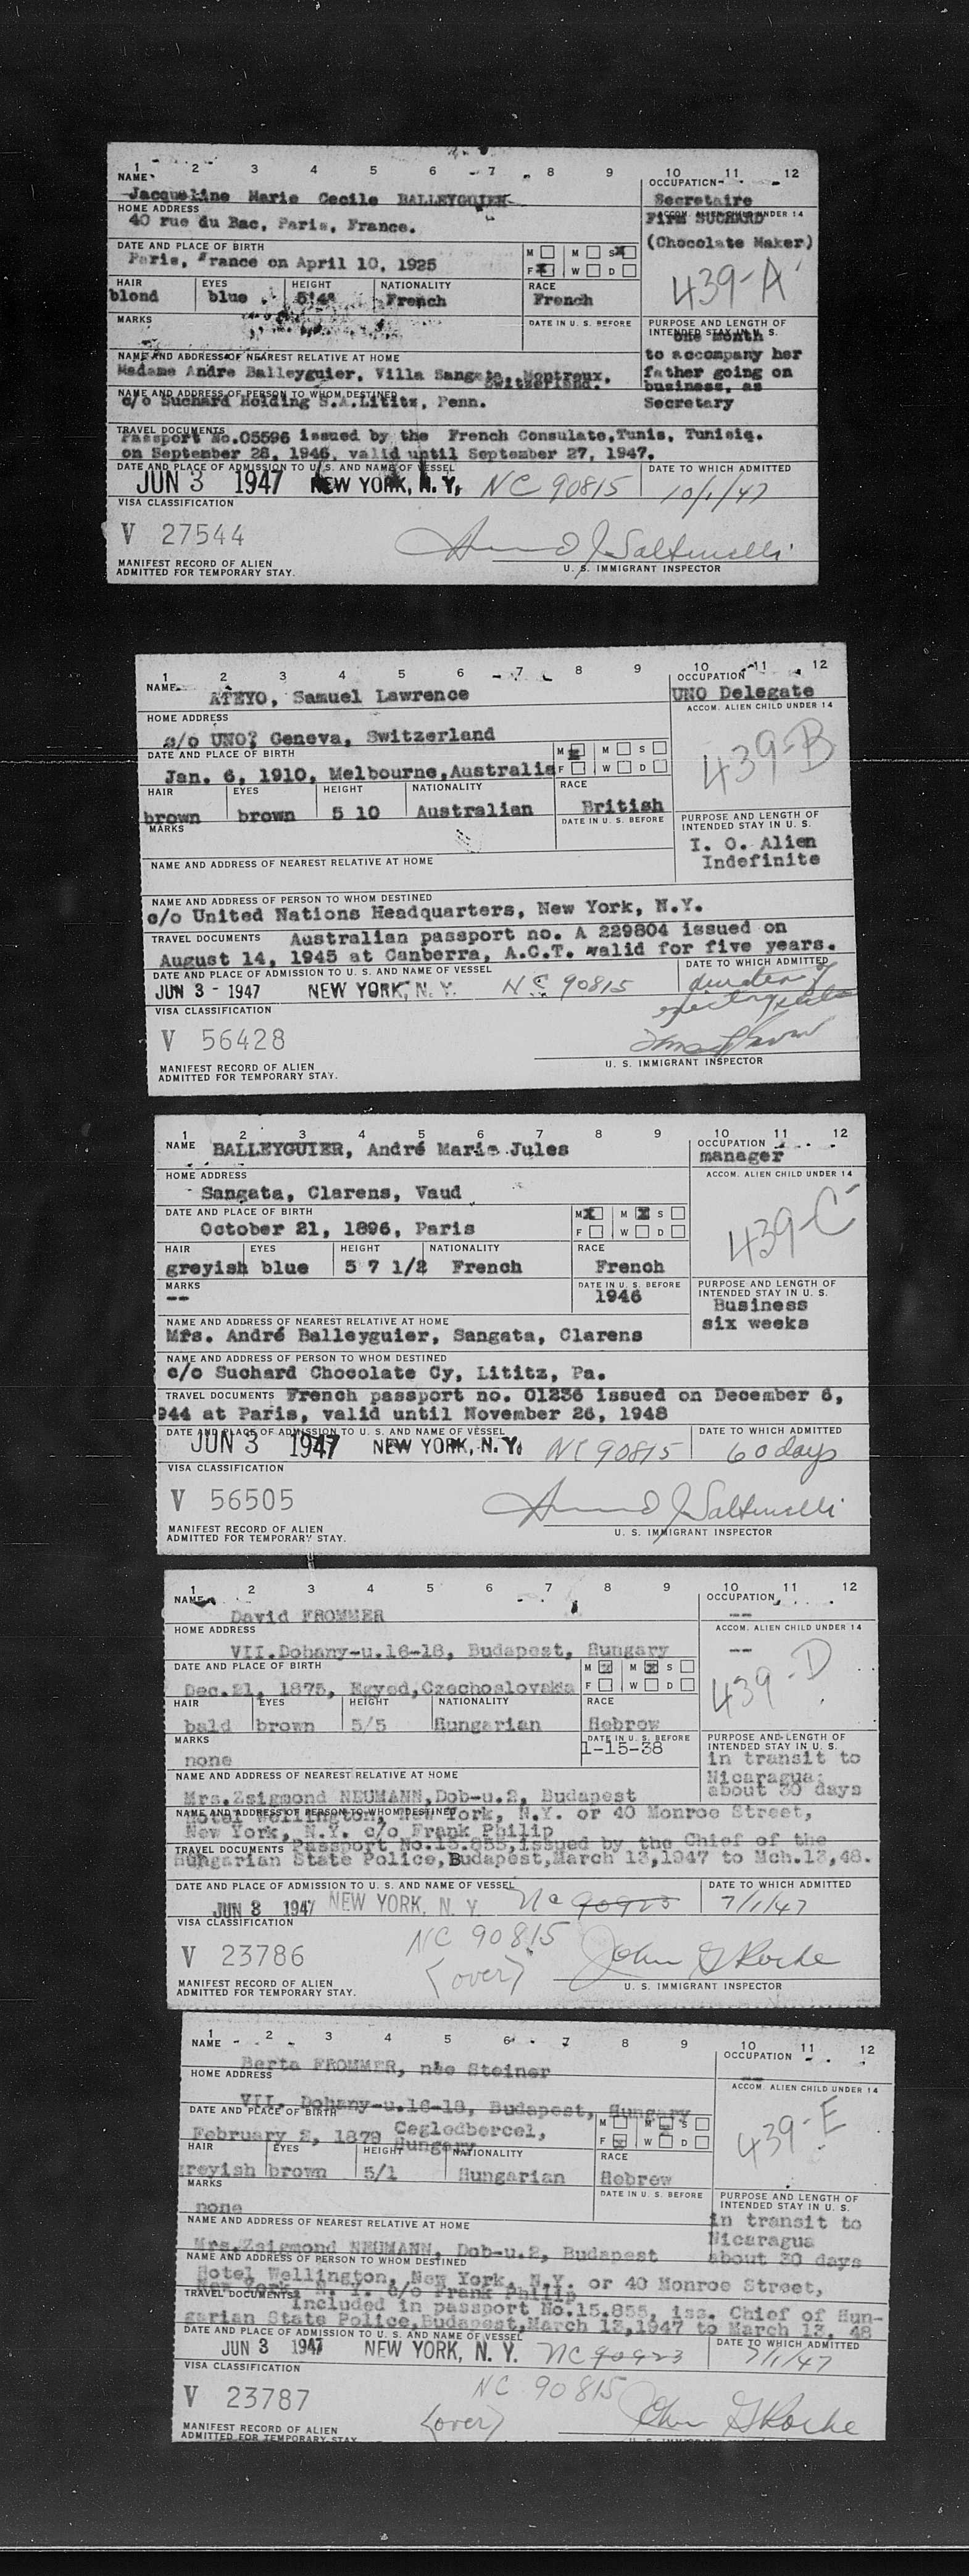 1 2 3 4 5 6 7 8 9 10 11 12
NAME OCCUPATION
Jacqueline Marie Cecile BALLEYGUIER Secretaire
HOME ADDRESS ACCOM. ALIEN CHILD UNDER 14
40 rue du Bac, Paris, France. Firm SUCHARD
(Chocolate Maker)
DATE AND PLACE OF BIRTH M M S
Paris, France on April 10, 1925 F W D
439-A
HAIR EYES HEIGHT NATIONALITY RACE
blond blue 5'4" French French
MARKS DATE IN U. S. BEFORE PURPOSE AND LENGTH OF
INTENDED STAY IN U. S.
one month
NAME AND ADDRESS OF NEAREST RELATIVE AT HOME to accompany her
Madame Andre Balleyguier, Villa Sangata, Montreux, father going on
Switzerland. business, as
NAME AND ADDRESS OF PERSON TO WHOM DESTINED
c/o Suchard Holding S.A.Lititz, Penn. Secretary
TRAVEL DOCUMENTS
Passport No.05596 issued by the French Consulate,Tunis, Tunisia.
on September 28, 1946, valid until September 27, 1947.
DATE AND PLACE OF ADMISSION TO U. S. AND NAME OF VESSEL DATE TO WHICH ADMITTED
JUN 3 1947 NEW YORK, N. Y. NC 90815 10/1/47
VISA CLASSIFICATION
V 27544
MANIFEST RECORD OF ALIEN
ADMITTED FOR TEMPORARY STAY.
U. S. IMMIGRANT INSPECTOR
1 2 3 4 5 6 7 8 9 10 11 12
NAME OCCUPATION
ATEYO, Samuel Lawrence UNO Delegate
HOME ADDRESS ACCOM. ALIEN CHILD UNDER 14
c/o UNO, Geneva, Switzerland
439-B
DATE AND PLACE OF BIRTH M M S
Jan. 6, 1910, Melbourne,Australia F W D
HAIR EYES HEIGHT NATIONALITY RACE
brown brown 5 10 Australian British
MARKS DATE IN U. S. BEFORE PURPOSE AND LENGTH OF
INTENDED STAY IN U. S.
I. O. Alien
Indefinite
NAME AND ADDRESS OF NEAREST RELATIVE AT HOME
NAME AND ADDRESS OF PERSON TO WHOM DESTINED
c/o United Nations Headquarters, New York, N.Y.
TRAVEL DOCUMENTS Australian passport no. A 229804 issued on
August 14, 1945 at Canberra, A.C.T. valid for five years.
DATE AND PLACE OF ADMISSION TO U. S. AND NAME OF VESSEL DATE TO WHICH ADMITTED
JUN 3 - 1947 NEW YORK, N. Y. NC 90815 duration of
VISA CLASSIFICATION
V 56428
MANIFEST RECORD OF ALIEN
ADMITTED FOR TEMPORARY STAY.
U. S. IMMIGRANT INSPECTOR
1 2 3 4 5 6 7 8 9 10 11 12
NAME BALLEYGUIER, André Marie Jules OCCUPATION
manager
HOME ADDRESS ACCOM. ALIEN CHILD UNDER 14
Sangata, Clarens, Vaud
439-C
DATE AND PLACE OF BIRTH M M S
October 21, 1896, Paris F W D
HAIR EYES HEIGHT NATIONALITY RACE
greyish blue 5 7 1/2 French French
MARKS DATE IN U. S. BEFORE PURPOSE AND LENGTH OF
-- 1946 INTENDED STAY IN U. S.
Business
six weeks
NAME AND ADDRESS OF NEAREST RELATIVE AT HOME
Mrs. André Balleyguier, Sangata, Clarens
NAME AND ADDRESS OF PERSON TO WHOM DESTINED
c/o Suchard Chocolate Cy, Lititz, Pa.
TRAVEL DOCUMENTS French passport no. 01236 issued on December 6,
944 at Paris, valid until November 26, 1948
DATE AND PLACE OF ADMISSION TO U. S. AND NAME OF VESSEL DATE TO WHICH ADMITTED
JUN 3 1947 NEW YORK, N. Y. NC 90815 60 days
VISA CLASSIFICATION
V 56505
MANIFEST RECORD OF ALIEN
ADMITTED FOR TEMPORARY STAY.
U. S. IMMIGRANT INSPECTOR
1 2 3 4 5 6 7 8 9 10 11 12
NAME OCCUPATION
David FROMMER --
HOME ADDRESS ACCOM. ALIEN CHILD UNDER 14
VII.Dohany-u.16-18, Budapest, Hungary --
439-D
DATE AND PLACE OF BIRTH M M S
Dec.21, 1875, Egyed,Czechoslovakia F W D
HAIR EYES HEIGHT NATIONALITY RACE
bald brown 5/5 Hungarian Hebrew
MARKS DATE IN U. S. BEFORE PURPOSE AND LENGTH OF
none 1-15-38 INTENDED STAY IN U. S.
in transit to
Nicaragua
about 30 days
NAME AND ADDRESS OF NEAREST RELATIVE AT HOME
Mrs.Zsigmond NEUMANN,Dob-u.2, Budapest
NAME AND ADDRESS OF PERSON TO WHOM DESTINED
Hotel Wellington, New York, N.Y. or 40 Monroe Street,
New York, N.Y. c/o Frank Philip
TRAVEL DOCUMENTS Passport No.15.855,issued by the Chief of the
Hungarian State Police,Budapest,March 13,1947 to Mch.13,48.
DATE AND PLACE OF ADMISSION TO U. S. AND NAME OF VESSEL DATE TO WHICH ADMITTED
JUN 3 1947 NEW YORK, N. Y. NC 90923 7/1/47
VISA CLASSIFICATION NC 90815
V 23786 (over) John G Roche
MANIFEST RECORD OF ALIEN
ADMITTED FOR TEMPORARY STAY.
U. S. IMMIGRANT INSPECTOR
1 2 3 4 5 6 7 8 9 10 11 12
NAME OCCUPATION
Berta FROMMER, née Steiner --
HOME ADDRESS ACCOM. ALIEN CHILD UNDER 14
VII. Dohany-u.16-18, Budapest, Hungary
439-E
DATE AND PLACE OF BIRTH M M S
February 2, 1879 Cegledbercel, F W D
Hungary
HAIR EYES HEIGHT NATIONALITY RACE
greyish brown 5/1 Hungarian Hebrew
MARKS DATE IN U. S. BEFORE PURPOSE AND LENGTH OF
none INTENDED STAY IN U. S.
in transit to
Nicaragua
about 30 days
NAME AND ADDRESS OF NEAREST RELATIVE AT HOME
Mrs.Zsigmond NEUMANN, Dob-u.2, Budapest
NAME AND ADDRESS OF PERSON TO WHOM DESTINED
Hotel Wellington, New York, N.Y. or 40 Monroe Street,
New York, N. Y. c/o Frank Philip
TRAVEL DOCUMENTS
included in passport No.15.855, iss. Chief of Hun-
garian State Police,Budapest,March 13,1947 to March 13, 48
DATE AND PLACE OF ADMISSION TO U. S. AND NAME OF VESSEL DATE TO WHICH ADMITTED
JUN 3 1947 NEW YORK, N. Y. NC 90923 7/1/47
VISA CLASSIFICATION NC 90815
V 23787 (over) John G Roche
MANIFEST RECORD OF ALIEN
ADMITTED FOR TEMPORARY STAY